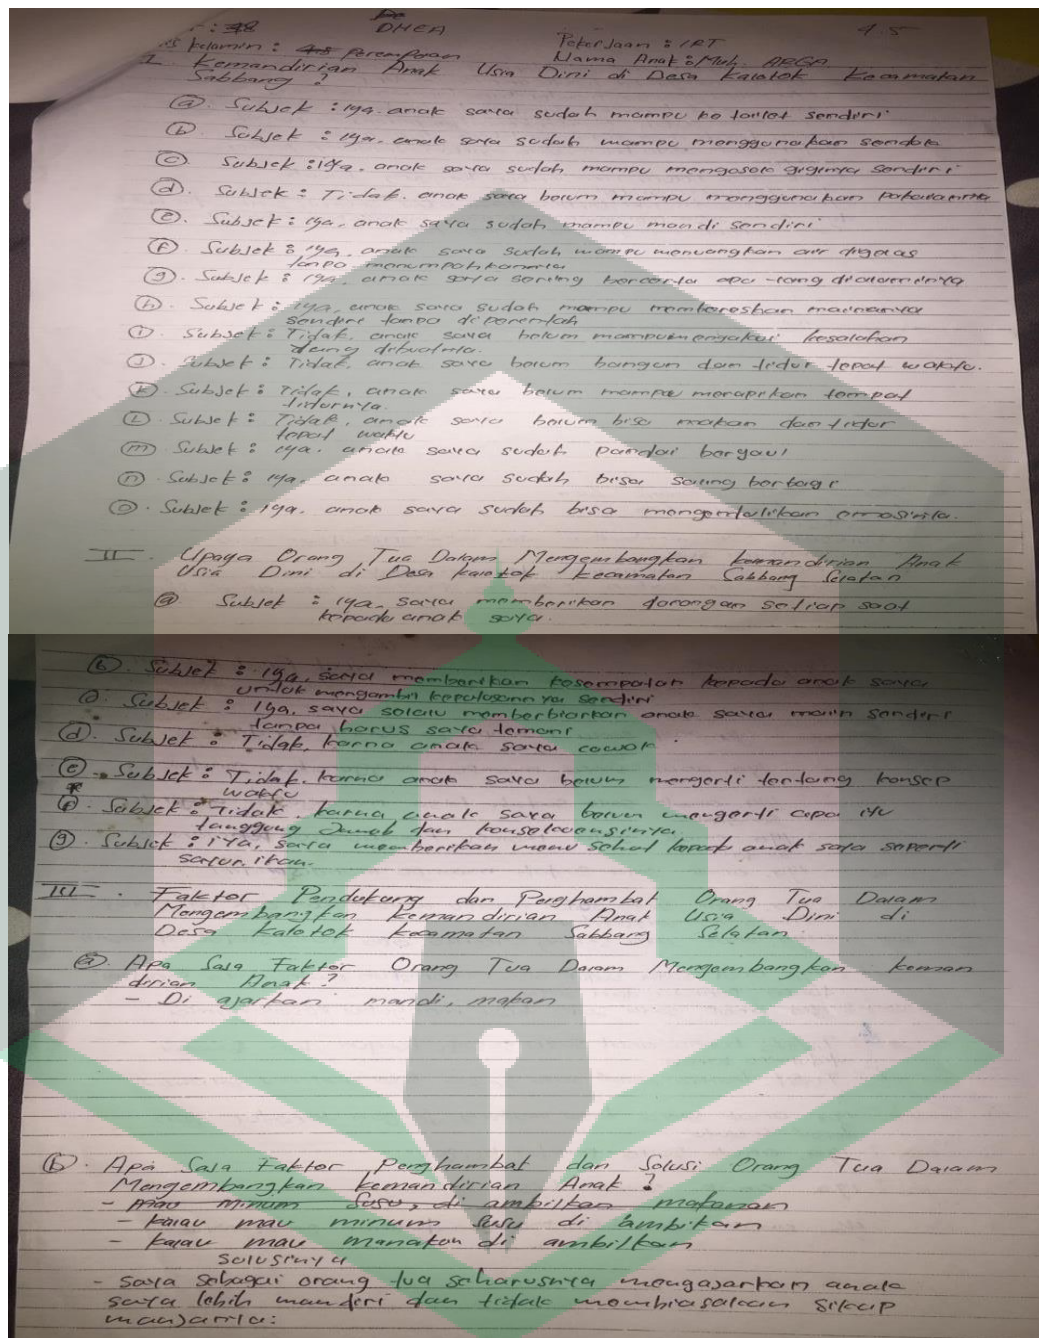 : 38 DHEA 4.5
kelamin : Perempuan Pekerjaan : IRT
Nama Anak : Muh. ARGA
I. Kemandirian Anak Usia Dini di Desa Kalotok Kecamatan
Sabbang ?
a. Subjek : iya. anak saya sudah mampu ke toilet sendiri
b. Subjek : iya. anak saya sudah mampu menggunakan sendok
c. Subjek : iya. anak saya sudah mampu mengosok giginya sendiri
d. Subjek : Tidak. anak saya belum mampu menggunakan Pakaiannya
e. Subjek : iya. anak saya sudah mampu mandi sendiri
f. Subjek : iya. anak saya sudah mampu menuangkan air digelas
tanpa menumpahkannya
g. Subjek : iya. anak saya sering bercerita apa yang dialaminya
h. Subjek : iya, anak saya sudah mampu membereskan mainannya
sendiri tanpa diperentah
i. Subjek : Tidak, anak saya belum mampu mengakui kesalahan
dibuatnya.
J. Subjek : Tidak, anak saya belum bangun dan tidur tepat waktu.
k. Subjek : Tidak, anak saya belum mampu merapikan tempat
tidurnya.
L. Subjek : Tidak, anak saya belum bisa makan dan tidur
tepat waktu
m. Subjek : iya. anak saya sudah pandai bergaul
n. Subjek : iya. anak saya sudah bisa saling berbagi
o. Subjek : iya. anak saya sudah bisa mengendalikan emosinya.
II. Upaya Orang Tua Dalam Mengembangkan kemandirian Anak
Usia Dini di Desa Kalotok Kecamatan Sabbang Selatan
a. Subjek : iya, saya memberikan dorongan setiap saat
kepada anak saya.
b. Subjek : iya, saya memberikan kesempatan kepada anak saya
untuk mengambil keputusannya sendiri
c. Subjek : iya, saya selalu memberbiarkan anak saya main sendiri
tanpa harus saya temani
d. Subjek : Tidak, karna anak saya cowok
e. Subjek : Tidak. karna anak saya belum mengerti tentang konsep
waktu
f. Subjek : Tidak. karna anak saya belum mengerti apa itu
tanggung Jawab dan
g. Subjek : iya, saya memberikan menu sehat kepada anak saya seperti
sayur. ikan.
III. Faktor Pendukung dan Penghambat Orang Tua Dalam
Mengembangkan Kemandirian Anak Usia Dini di
Desa Kalotok Kecamatan Sabbang Selatan
a. Apa Saja Faktor Orang Tua Dalam Mengembangkan keman
dirian Anak ?
- Di ajarkan mandi, makan
b. Apa Saja Faktor Penghambat dan Solusi Orang Tua Dalam
Mengembangkan kemandirian Anak ?
- mau minum susu, di ambilkan makanan
- kalau mau minum susu di ambikan
- kalau mau manakan di ambilkan
solusinya
- saya sebagai orang tua seharusnya mengajarkan anak
saya lebih mandiri dan tidak membiasakan sikap
manjanya: